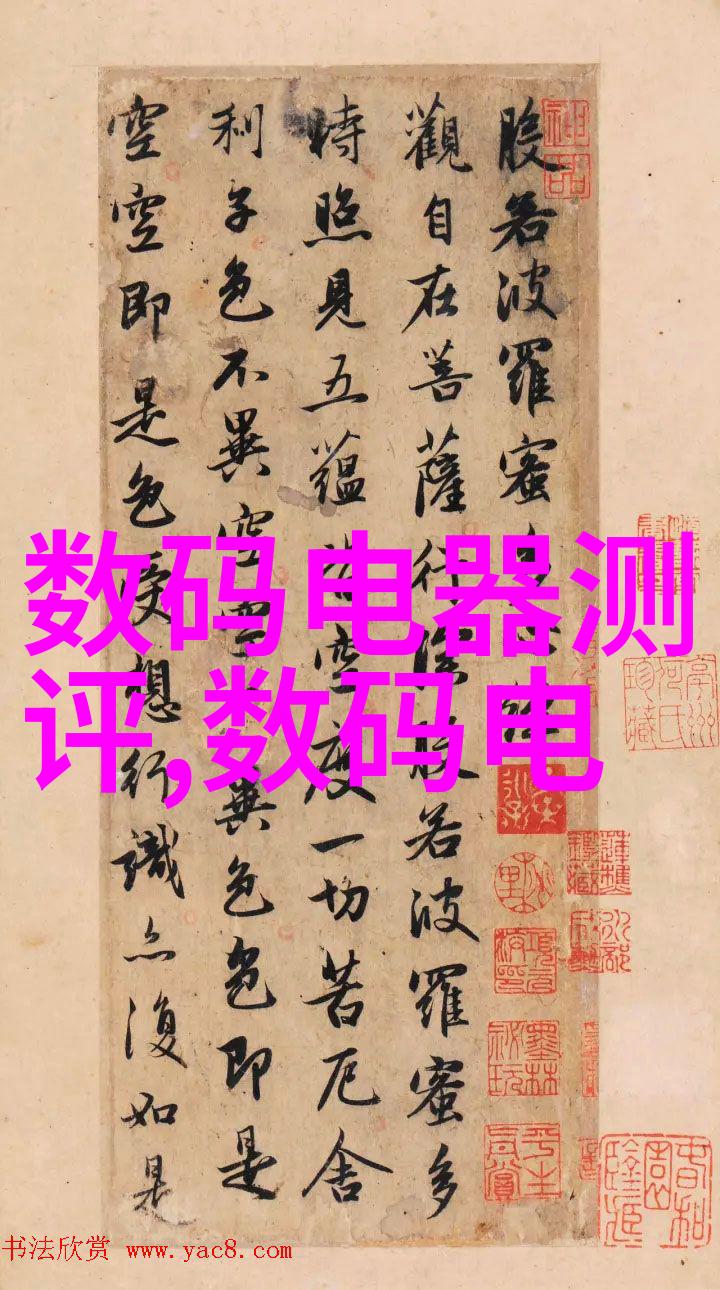 般若波羅蜜多心經
觀自在菩薩行深般若波羅蜜多
時照見五蘊皆空度一切苦厄舍
利子色不異空空不異色色即是
空空即是色受想行識亦復如是
神品
墨林祕玩
数码电器测
评,数码电
书法欣赏 www.yac8.com